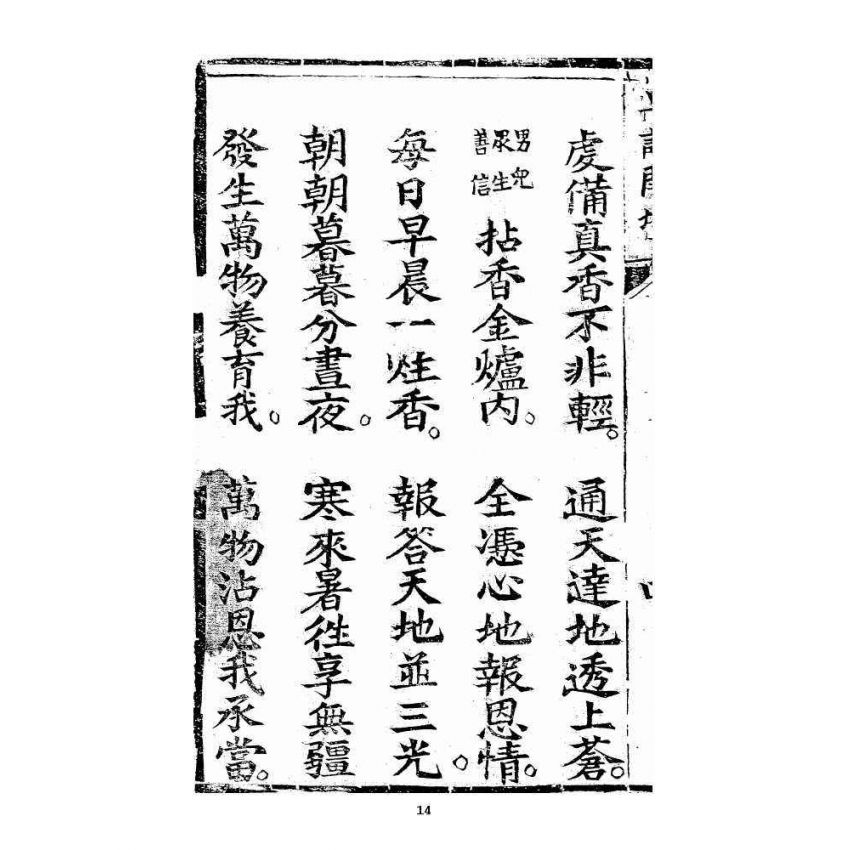 虔備真香不非輕。通天達地透上蒼。
男兒眾生善信拈香金爐內。全憑心地報恩情。
每日早晨一炷香。報答天地並三光。
朝朝暮暮分晝夜。寒來暑徃享無疆
發生萬物養育我。萬物沾恩我承當。
14